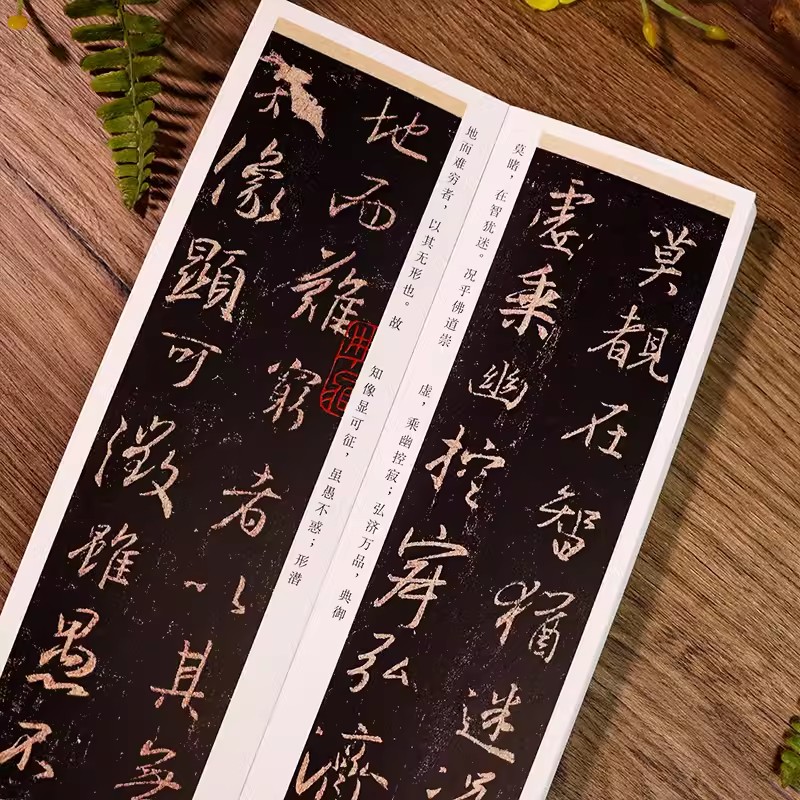 地而難窮者以其無
像顯可徵雖愚不
地而难穷者，以其无形也。故
知像显可征，虽愚不惑；形潜
莫覩在智猶迷
虛乘幽控寂弘濟
莫睹，在智犹迷。况乎佛道崇
虚，乘幽控寂；弘济万品，典御